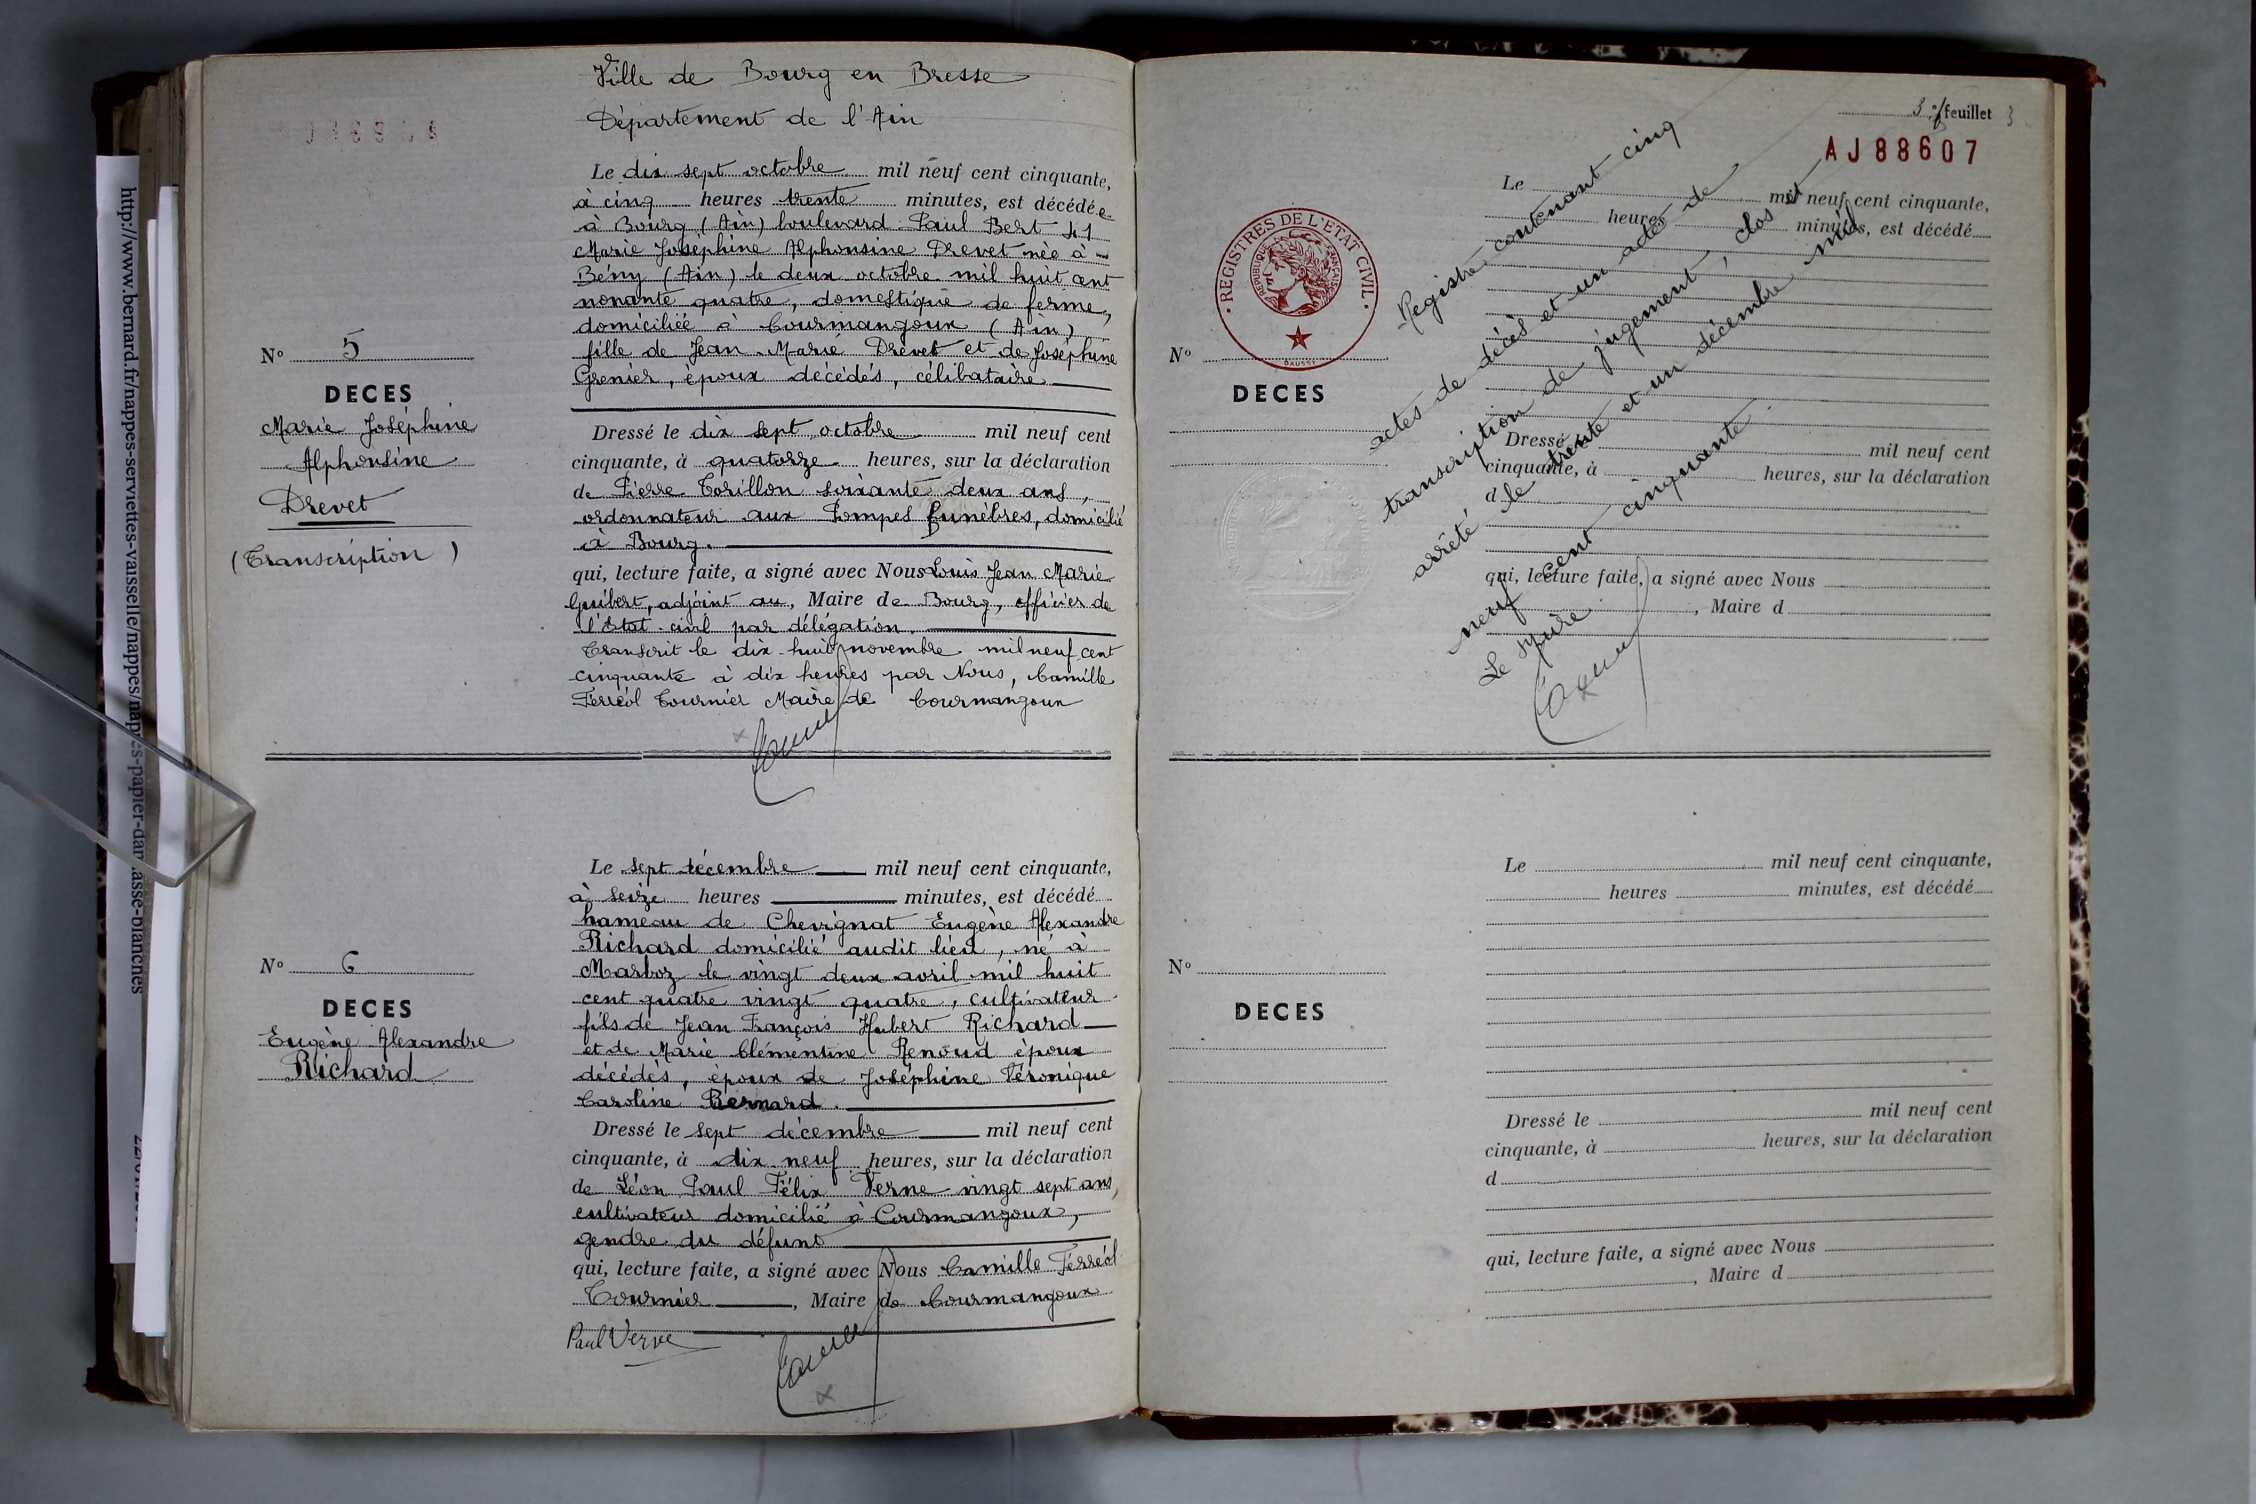 Ville de Bourg en Bresse
Département de l'Ain
Le dix sept octobre mil neuf cent cinquante,
à cinq heures trente minutes, est décédée
à Bourg (Ain) boulevard Paul Bert 41
Marie Joséphine Alphonsine Drevet née à
Bény (Ain) le deux octobre mil huit cent
nonante quatre, domestique de ferme,
domiciliée à Courmangoux (Ain)
fille de Jean-Marie Drevet et de Joséphine
Grenier, époux décédés, célibataire
Nº 5
DECES
Marie Joséphine
Alphonsine
Drevet
(Transcription)
Dressé le dix sept octobre mil neuf cent
cinquante, à quatorze heures, sur la déclaration
de Pierre Torillon soixante deux ans,
ordonnateur aux Pompes funèbres, domicilié
à Bourg.
qui, lecture faite, a signé avec Nous Louis Jean Marie
Guibert, adjoint au, Maire de Bourg, officier de
l'Etat-civil par délégation.
Transcrit le dix-huit novembre mil neuf cent
cinquante à dix heures par Nous, Camille
Ferréol Tournier Maire de Courmangoux
Le sept décembre mil neuf cent cinquante,
à seize heures minutes, est décédé
hameau de Chevignat Eugène Alexandre
Richard domicilié audit lieu, né à
Marboz le vingt deux avril mil huit
cent quatre vingt quatre, cultivateur
fils de Jean François Hubert Richard
et de Marie Clémentine Renoud époux
décédés, époux de Joséphine Véronique
Caroline Bernard.
Nº 6
DECES
Eugène Alexandre
Richard
Dressé le sept décembre mil neuf cent
cinquante, à dix neuf heures, sur la déclaration
de Léon Paul Félix Verne vingt sept ans,
cultivateur domicilié à Courmangoux,
gendre du défunt
qui, lecture faite, a signé avec Nous Camille Ferréol
Tournier, Maire de Courmangoux
Paul Verne
http://www.bernard.fr/nappes-serviettes-vaisselle/nappes/nappes-papier-damasse-blanches
3 feuillet 3
AJ88607
REGISTRES DE L'ETAT CIVIL
REPUBLIQUE FRANÇAISE
Le mil neuf cent cinquante,
heures minutes, est décédé
Nº
DECES
Dressé le mil neuf cent
cinquante, à heures, sur la déclaration
d
qui, lecture faite, a signé avec Nous
, Maire d
Registre contenant cinq
actes de décès et un actes de
transcription de jugement, clos et
arrêté le trente et un décembre mil
neuf cent cinquante.
Le Maire
Le mil neuf cent cinquante,
heures minutes, est décédé
Nº
DECES
Dressé le mil neuf cent
cinquante, à heures, sur la déclaration
d
qui, lecture faite, a signé avec Nous
, Maire d